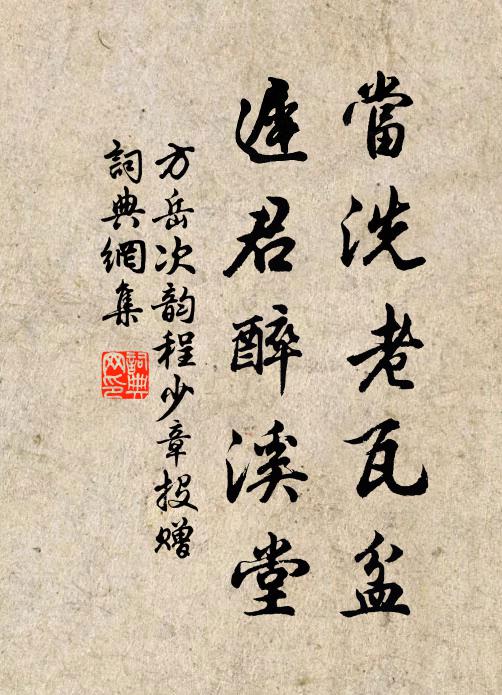 當洗老瓦盆
遲君醉溪堂
方岳次韵程少章投贈
詞典網集
詞典网印